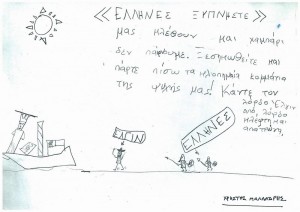 <<ΕΛΛΗΝΕΣ ΞΥΠΝΗΣΤΕ>>
Μας κλέβουν και χαμπάρι
δεν πήραμε. Ξεσηκωθείτε και
πάρτε πίσω τα κλοπιμαία κομμάτια
της ψυχής μας! Κάντε τον
λόρδο Έλγιν
από λόρδο
κλέφτη και
απατεώνα.
ΕΛΓΙΝ
ΕΛΛΗΝΕΣ
ΧΡΗΣΤΟΣ